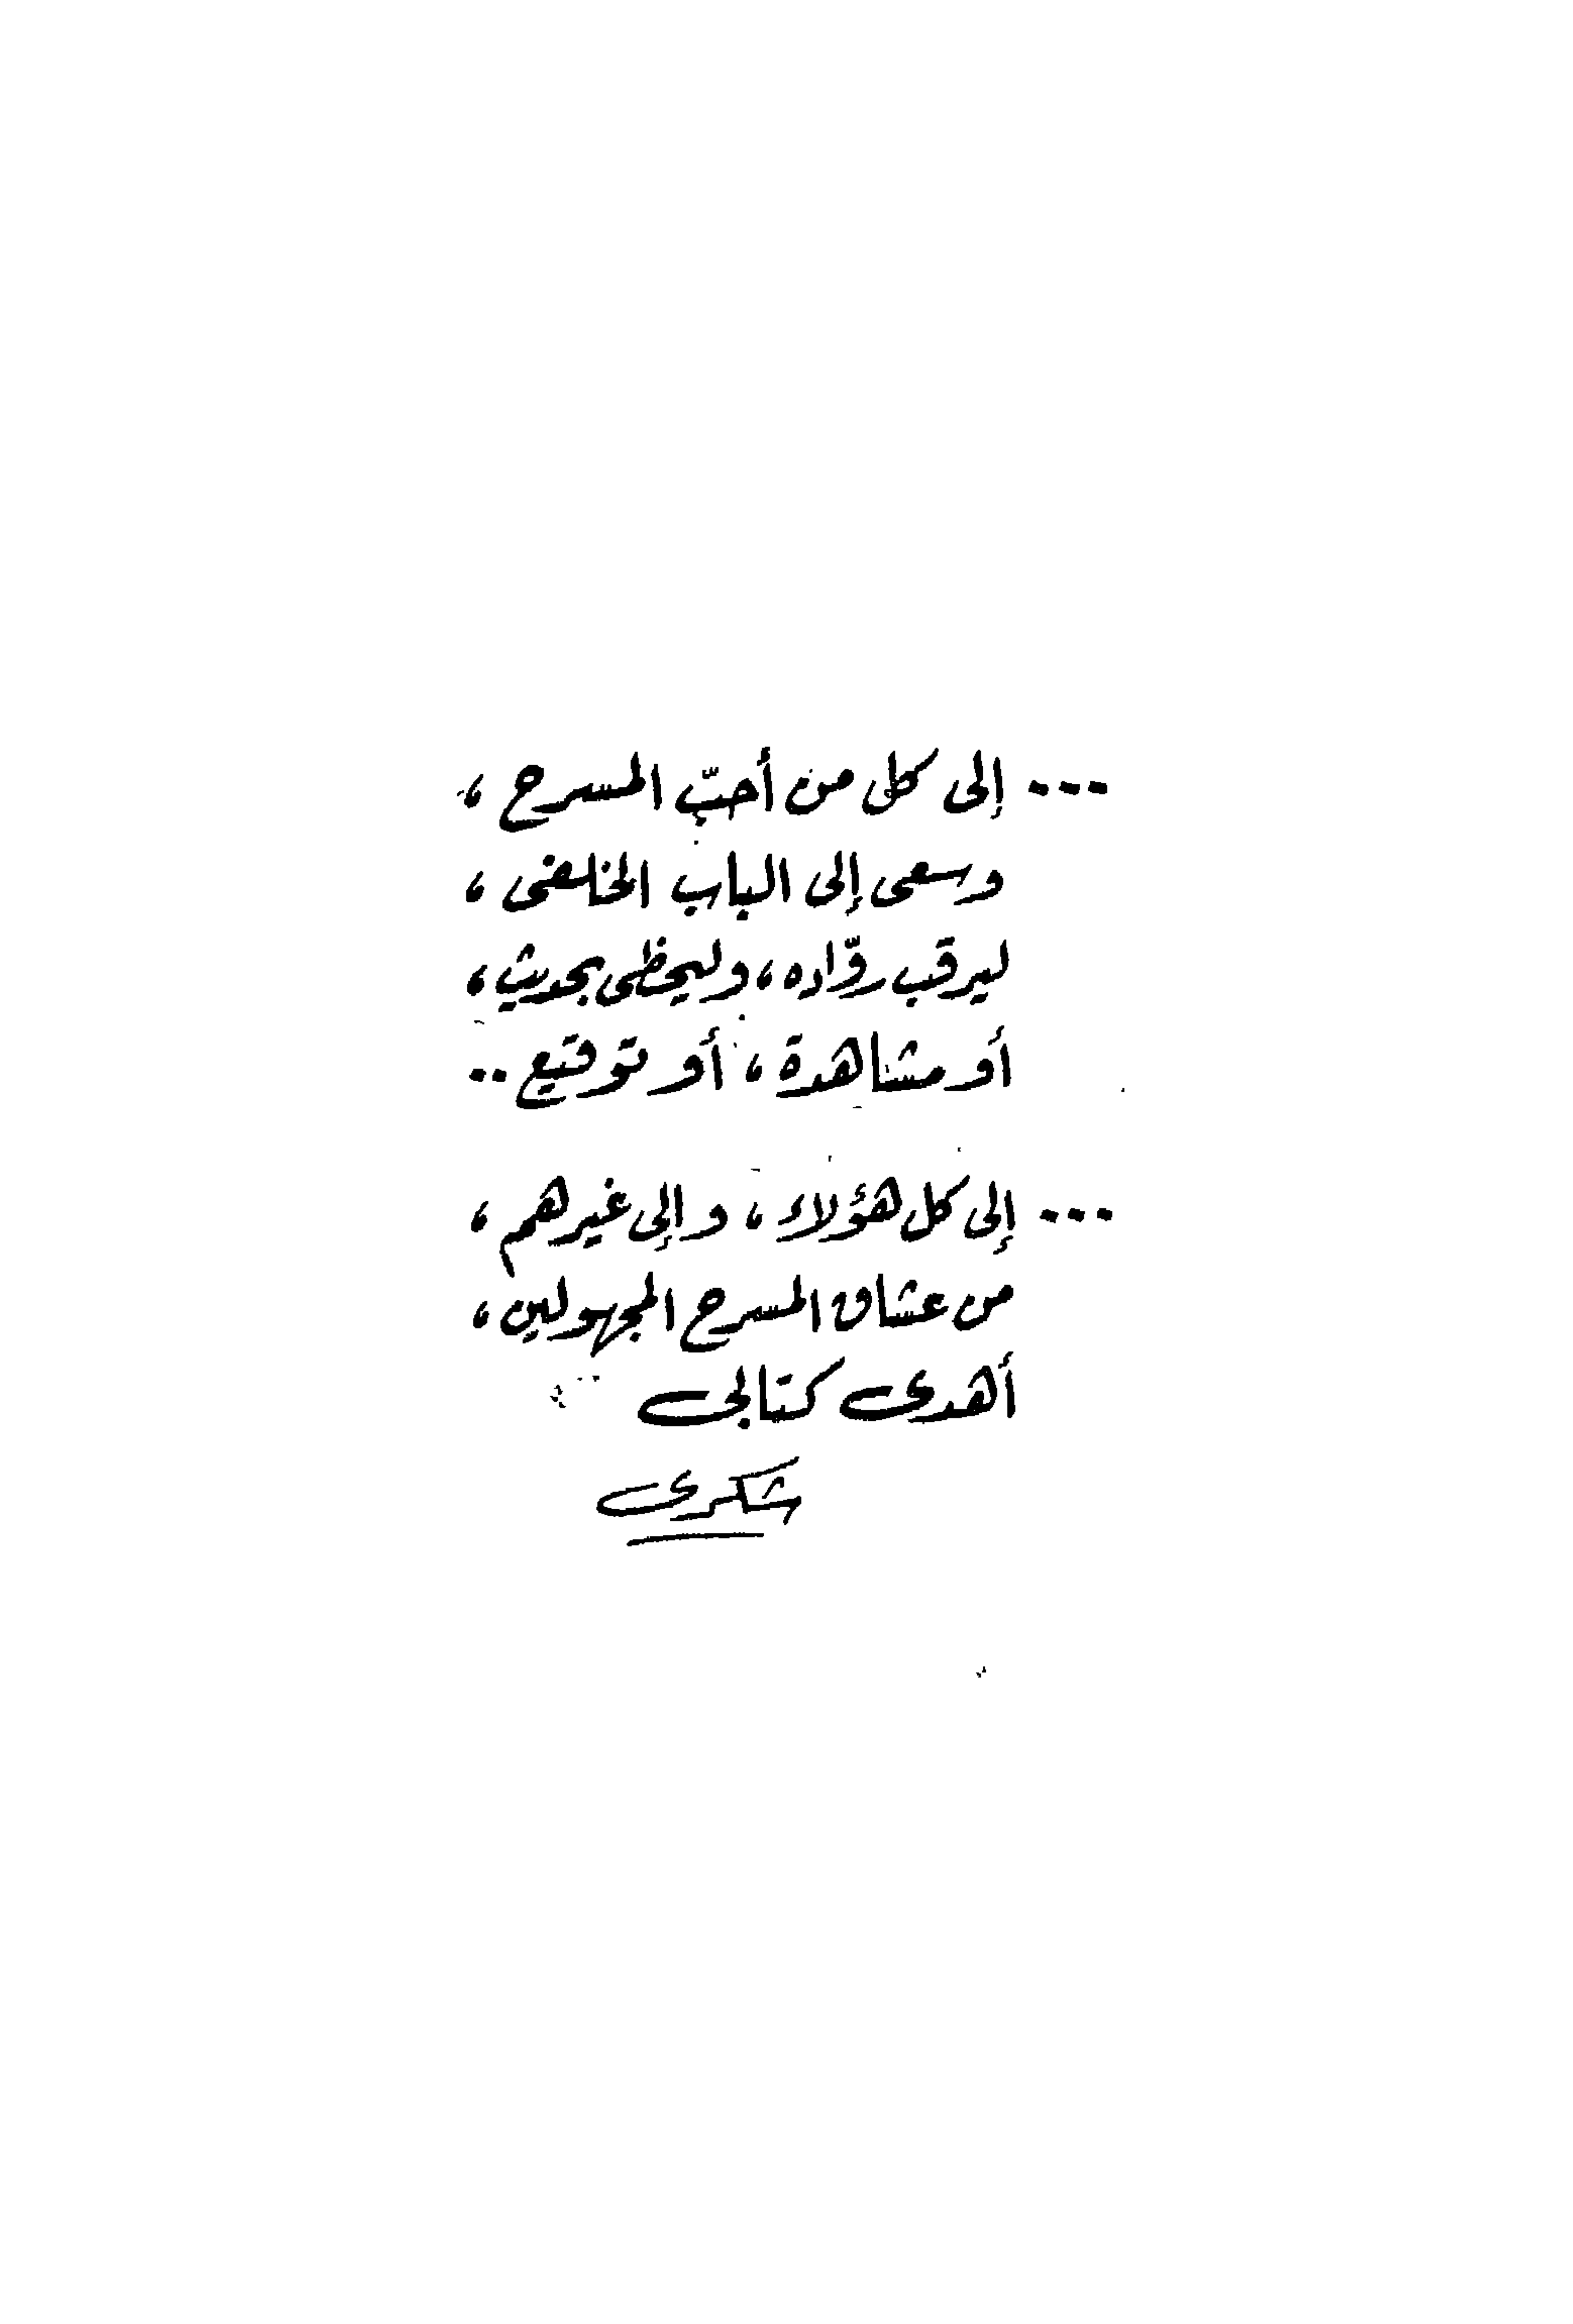 ... إلى كل من أحبّ المسرح ،
وسعى إلى الباب الخلفى ،
ليرقب روّاده ، وليحظى بحديث ،
أو مشاهدة ، أو توقيع ..
... إلى كل هؤلاء ، وإلى غيرهم ،
من عشاق المسرح المجهولين ،
أهدى كتابى
شكرى